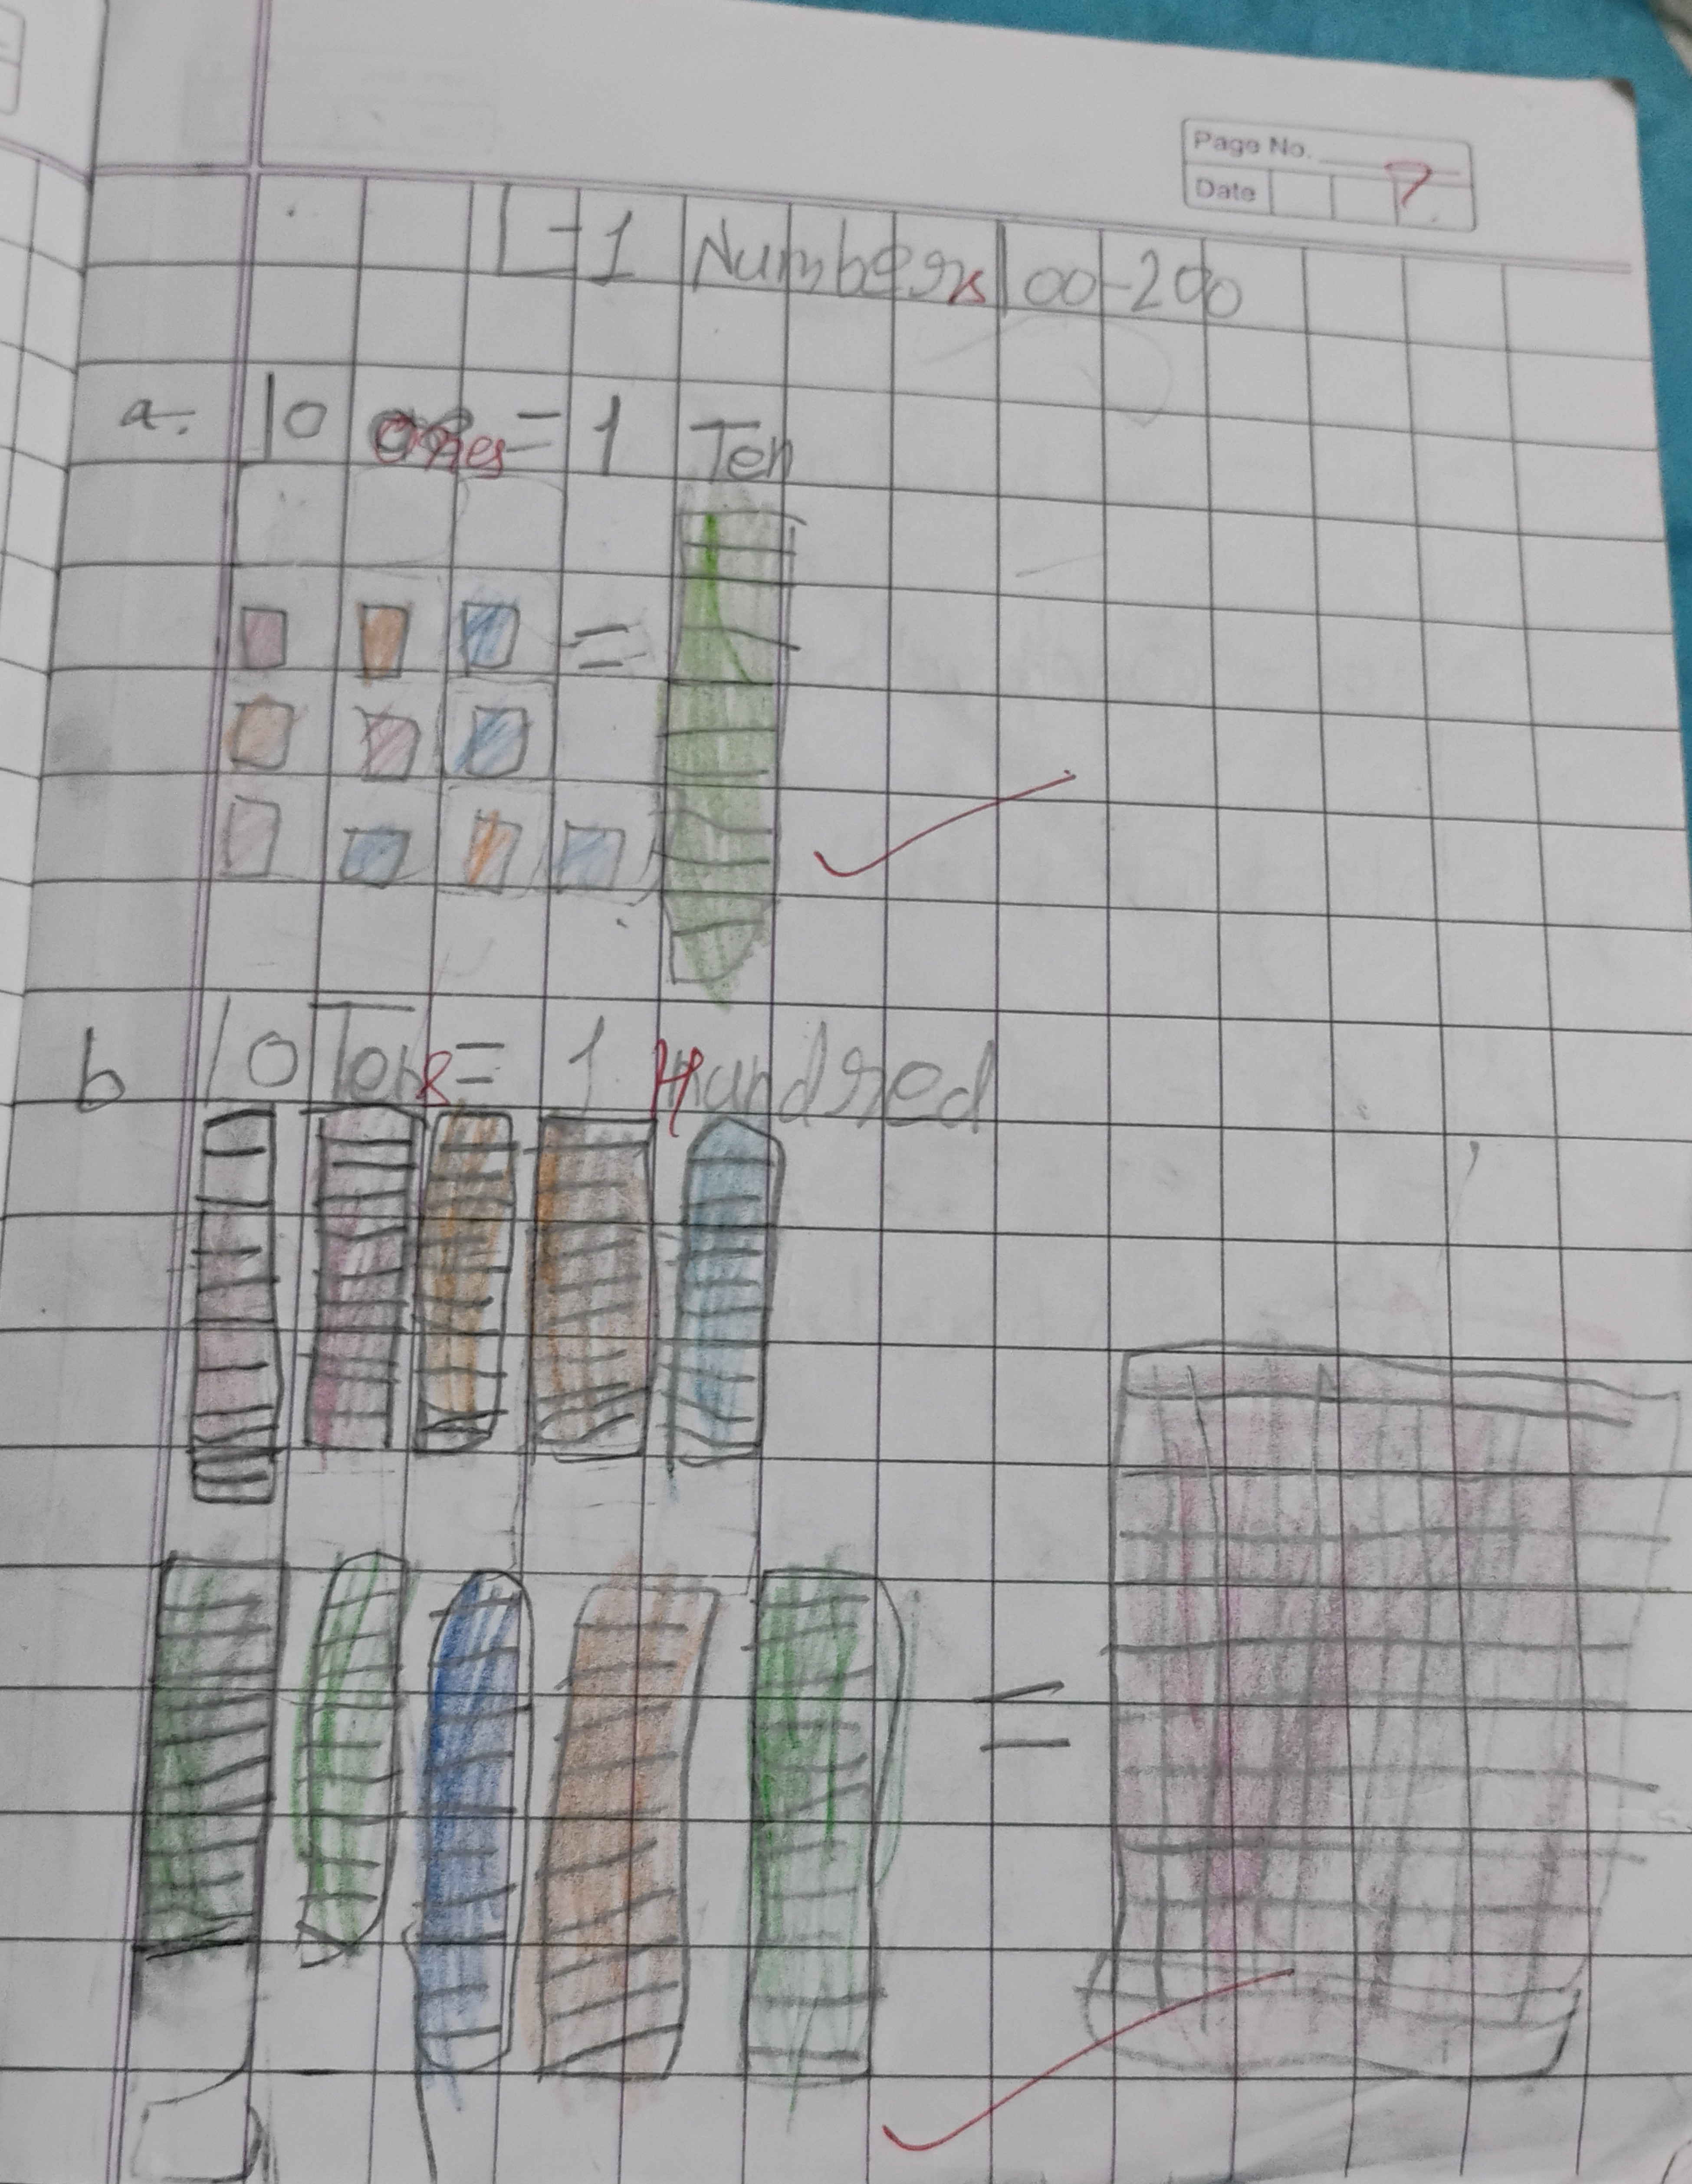 Page No.
Date
?
L-1 Numbers 100-200
a. 10 ones = 1 Ten
=
b 10 Tens = 1 Hundred
=